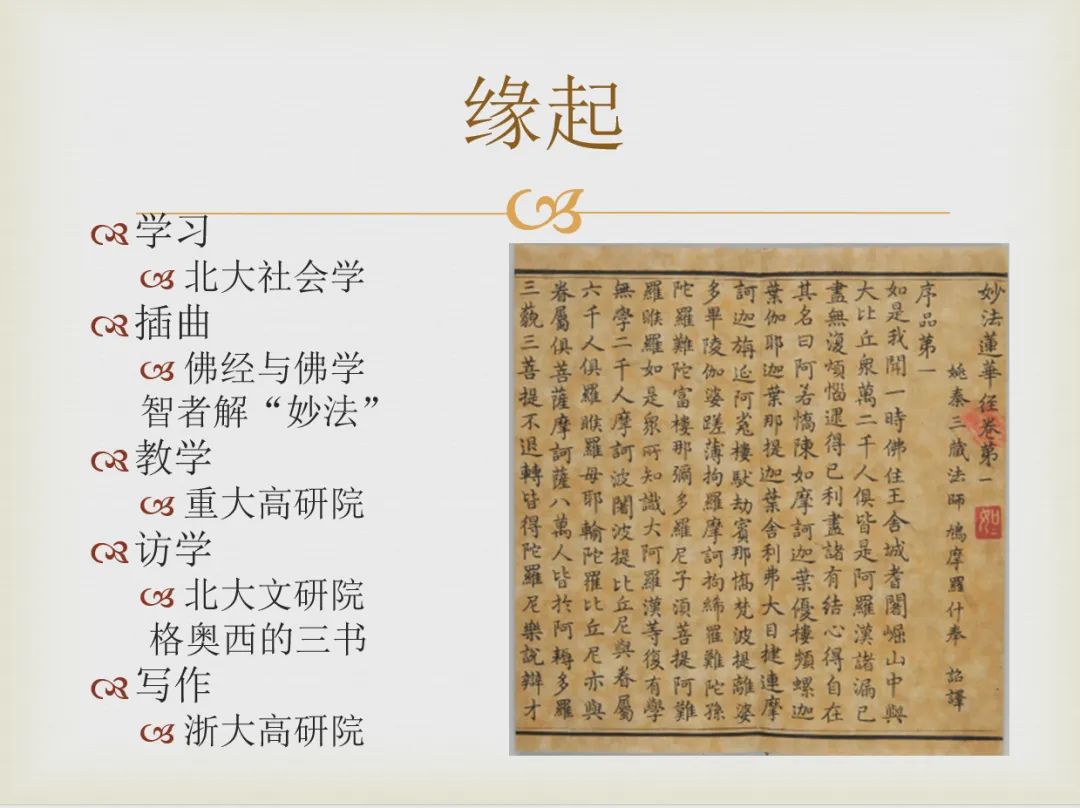 缘起
学习
北大社会学
插曲
佛经与佛学
智者解“妙法”
教学
重大高研院
访学
北大文研院
格奥西的三书
写作
浙大高研院
妙法蓮華經卷第一
姚秦三藏法師 鳩摩羅什奉 詔譯
序品第一
如是我聞一時佛住王舍城耆闍崛山中與
大比丘衆萬二千人俱皆是阿羅漢諸漏已
盡無復煩惱逮得已利盡諸有結心得自在
其名曰阿若憍陳如摩訶迦葉優樓頻螺迦
葉伽耶迦葉那提迦葉舍利弗大目揵連摩
訶迦旃延阿㝹樓馱劫賓那憍梵波提離婆
多畢陵伽婆蹉薄拘羅摩訶拘絺羅難陀孫
陀羅難陀富樓那彌多羅尼子須菩提阿難
羅睺羅如是衆所知識大阿羅漢等復有學
無學二千人摩訶波闍波提比丘尼與眷屬
六千人俱羅睺羅母耶輸陀羅比丘尼亦與
眷屬俱菩薩摩訶薩八萬人皆於阿耨多羅
三藐三菩提不退轉皆得陀羅尼樂說辯才